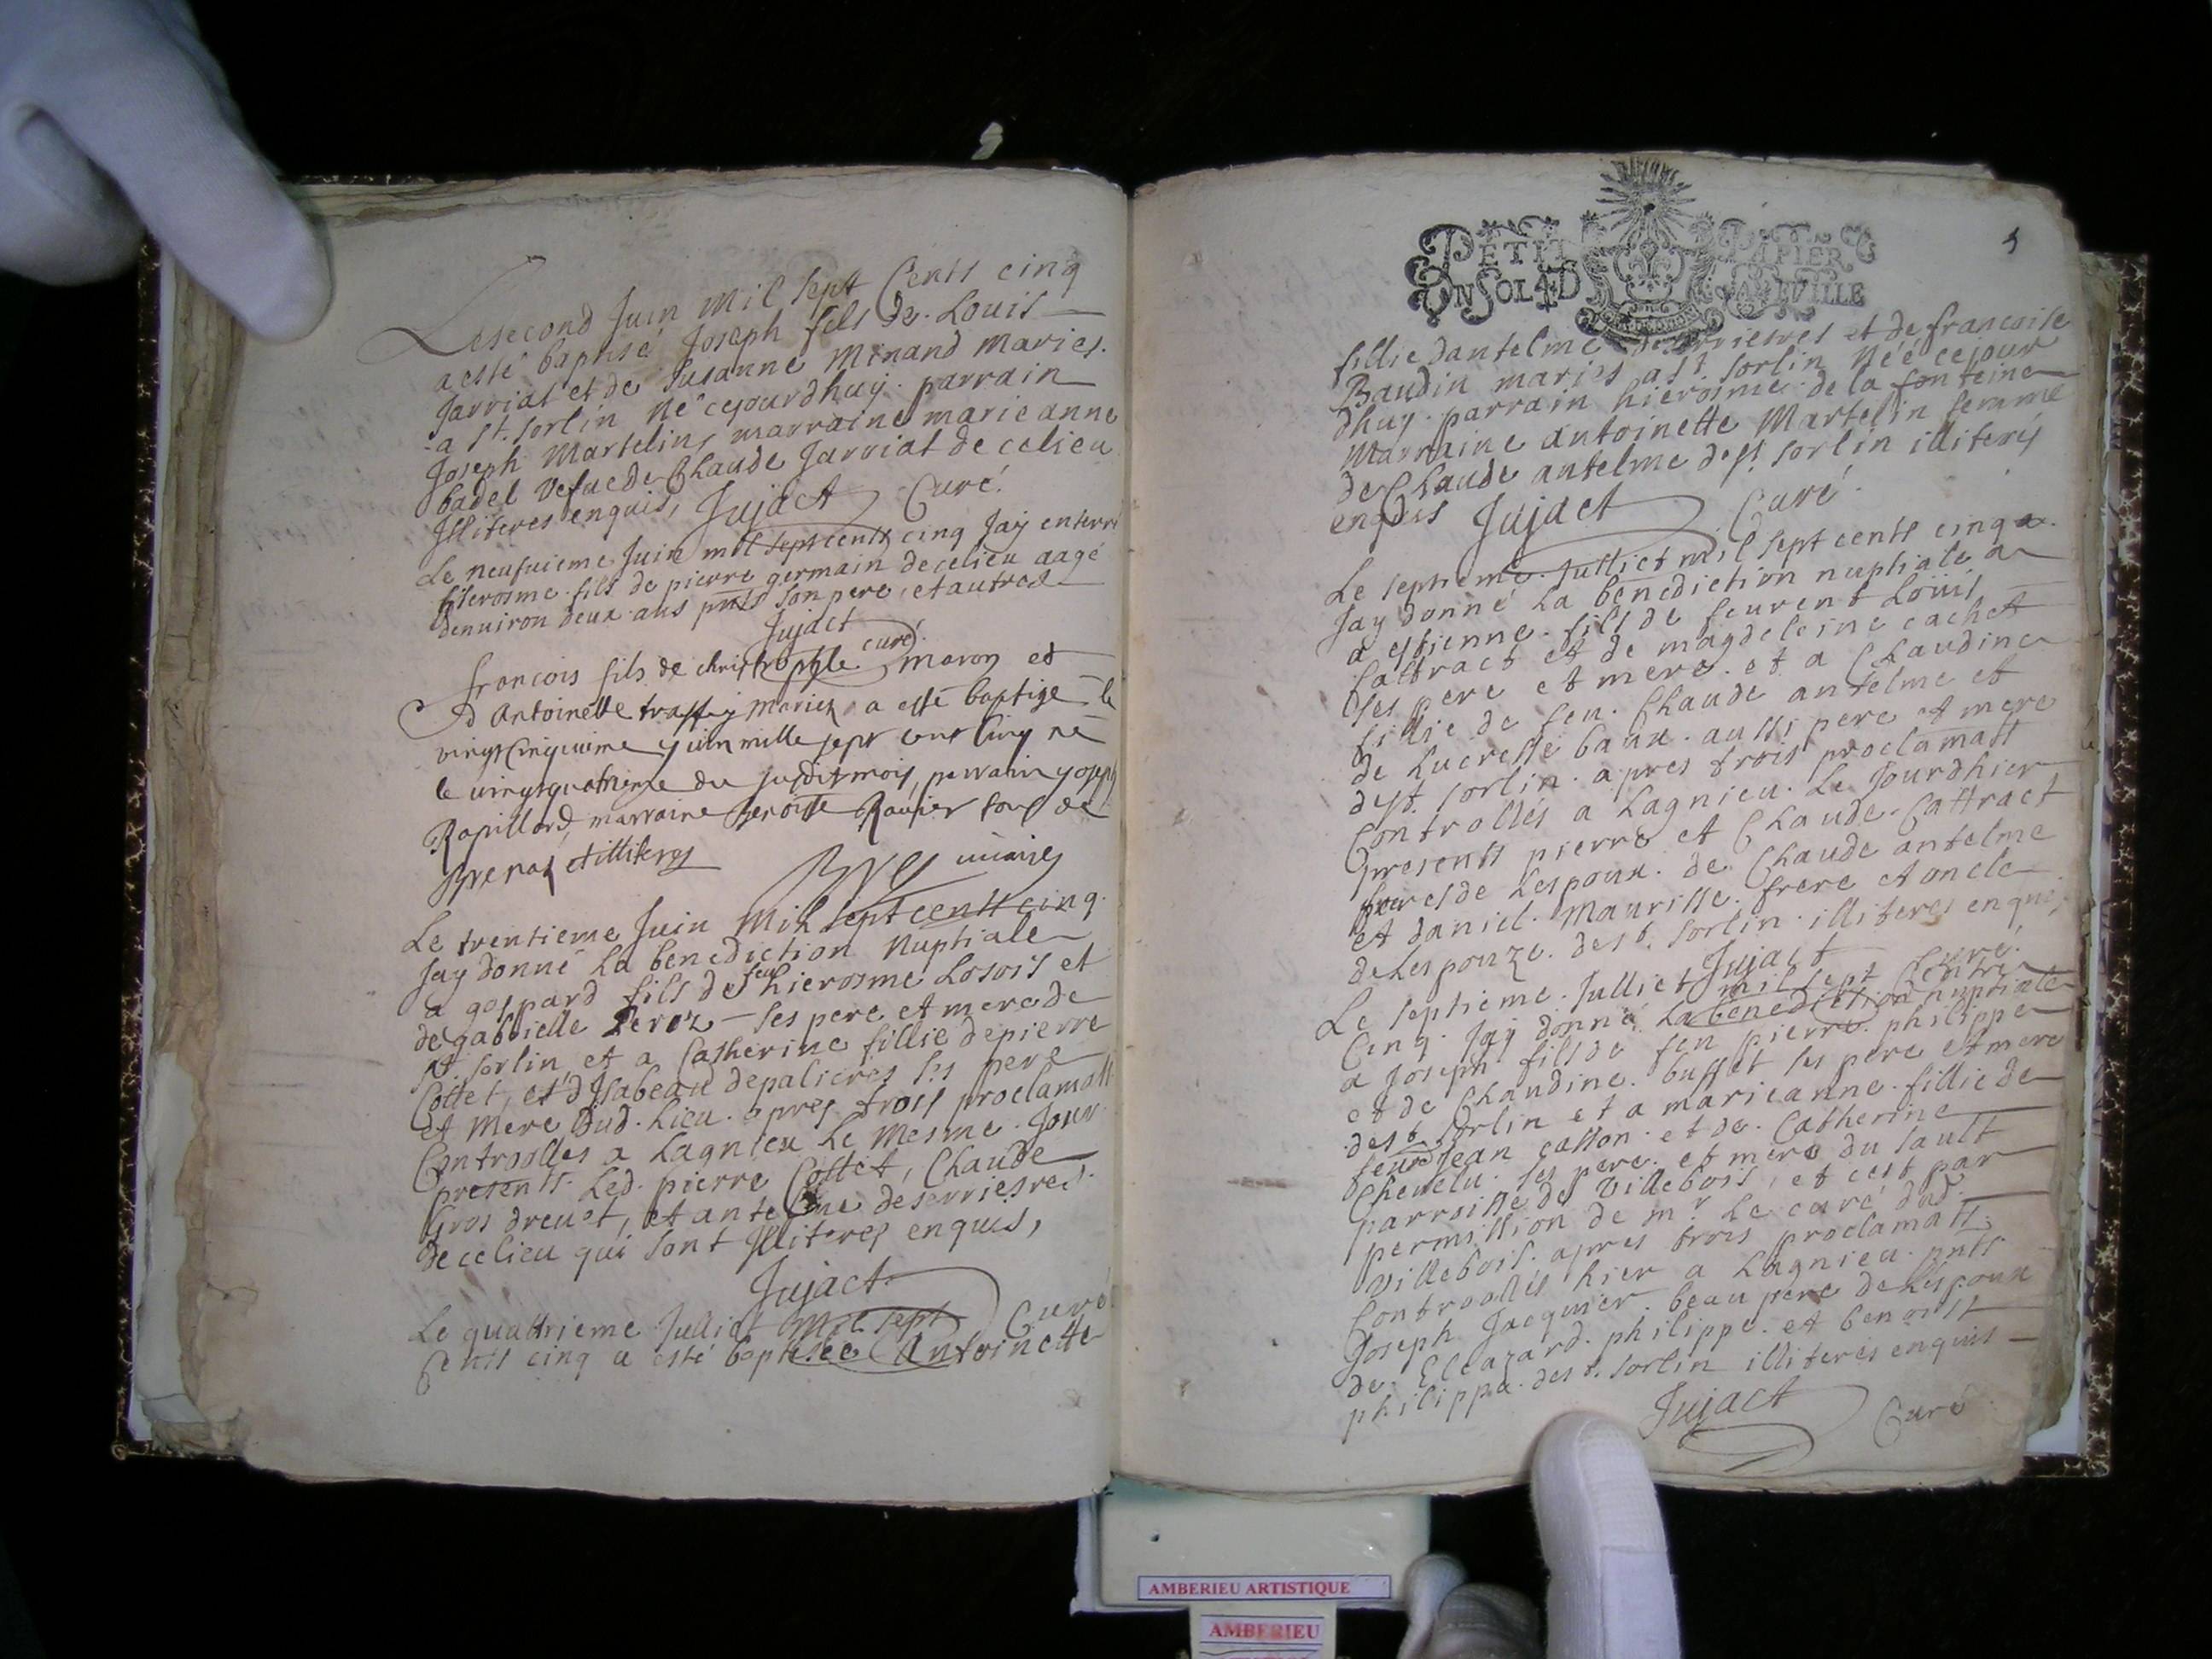 Le second Juin mil sept Cents cinq
a esté baptisé Joseph fils de Louis
Jarriat et de Susanne Minand mariés
a st. sorlin né cejourdhuy. parrain
Joseph Martelin, marraine marie anne
badel vefue de Claude Jarriat de ce lieu
Illiteres enquis, Jujact Curé.
Le neufuieme Juin mil sept cents cinq Jay enterré
hierosme fils de pierre germain de ce lieu aagé
denuiron deux ans pnts son pere, et autres
Jujact curé.
francois fils de christophle maron et
d Antoinette mariez a esté baptize le
vingt cinquieme yuin mille sept cent Cinq né
le vingtquatrieme du susdit mois, parrain yoseph
Rapillard, marraine Benoite Rauier tous de
et illiteres
vicaire
Le trentieme Juin Mil sept cents cinq.
Jay donné La benediction Nuptiale
a gaspard fils de feu hierosme Losois et
de gabrielle Peroz ses pere et mere de
st. sorlin, et a Catherine fillie de pierre
Cottet, et d'Isabeau depalieres ses pere
et mere dud. Lieu. apres trois proclamatt
Controolles a Lagnieu Le mesme Jour
presents. Led. pierre Cottet, Claude
Gros dreuet, et antelme deserriesres.
de ce lieu qui sont Illiteres enquis,
Jujact.
Curé
Le quattrieme Julliet mil sept
Cents cinq a esté baptisée Antoinette
5
PETIT PAPIER
UN SOL 4 D LA FEUILLE
fillie dantelme deserriesres et de francoise
Baudin mariés a st. sorlin Néé cejour
dhuy. parrain hierosme de la fonteine
Marraine antoinette Martelin femme
de Claude antelme de st. sorlin illiterés
enquis Jujact Curé.
Le septieme. Julliet mil sept cents cinq
Jay donné La benediction nuptiale a
a estienne. fils de feurent Louis
Cattract et de magdeleine cachet
ses pere et mere. et a Claudine
fillie de feu. Claude antelme et
de Lucresse baux. aussi pere et mere
de st. sorlin. apres trois proclamatt
Controllés a Lagnieu. Le Jourdhier
presents pierre et Claude. Cattract
freres de Lespoux. de Claude antelme
et daniel. Maurisse. frere et oncle
de Lespouze. de st. sorlin. illiteres enquis
Jujact Curé.
Le septieme. Julliet mil sept Cents
Cinq. Jay donné La benediction nuptiale
a Joseph fils de feu pierre. philippe
et de Claudine. buffet ses pere et mere
de st. sorlin et a marieanne. fillie de
feu Jean catton. et de. Catherine
Cheuelu. ses pere. et mere du sault
parroisse de Villebois, et cest par
permission de mr. Le curé dud.
Villebois. apres trois proclamatt.
Controollés hier a Lagnieu. pnts.
Joseph Jacquier. beau pere de Lespoux
de. Eleazard. philippe. et benoist
philippe. de st. sorlin illiteres enquis
Jujact Curé
AMBERIEU ARTISTIQUE
AMBERIEU